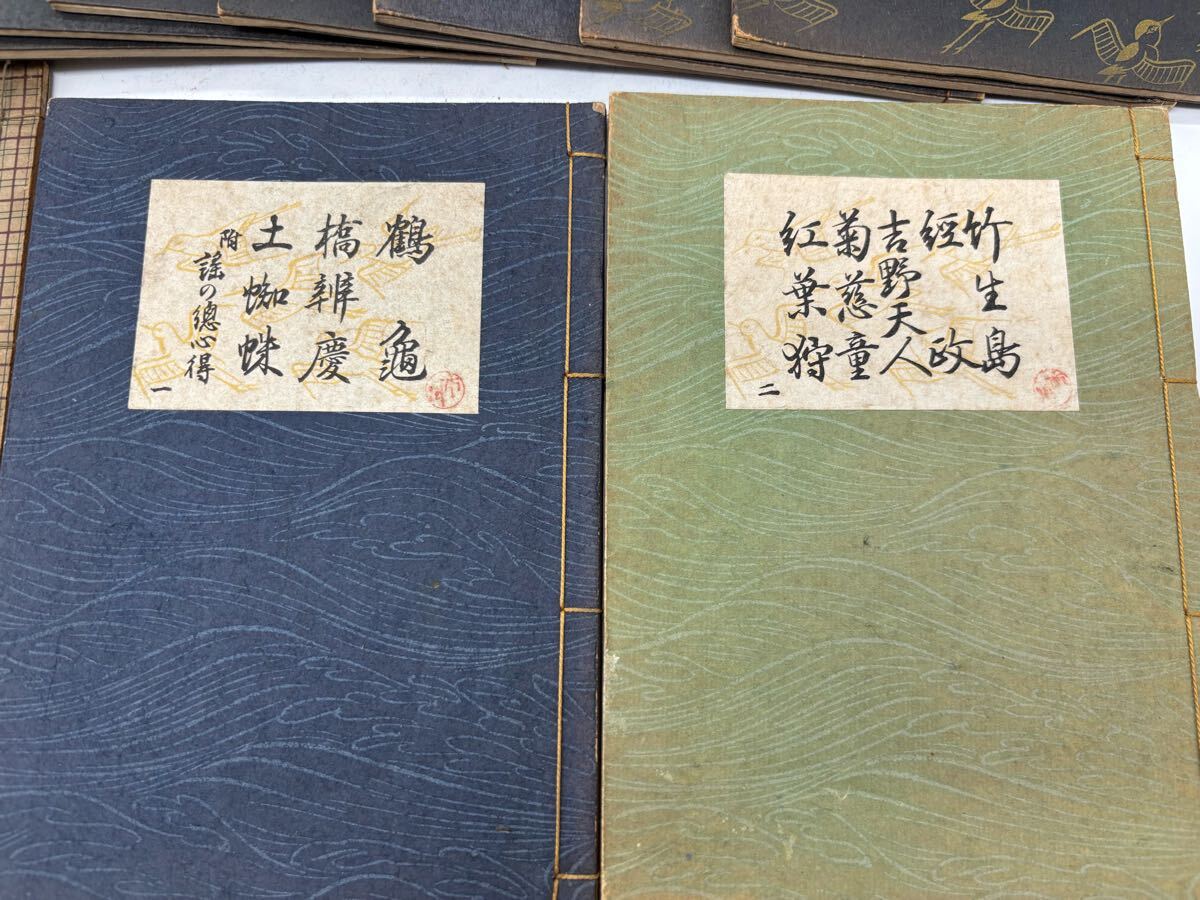 鶴亀
橋辨慶
土蜘蛛
附謡の總心得
一
竹生島
經政
吉野天人
菊慈童
紅葉狩
二